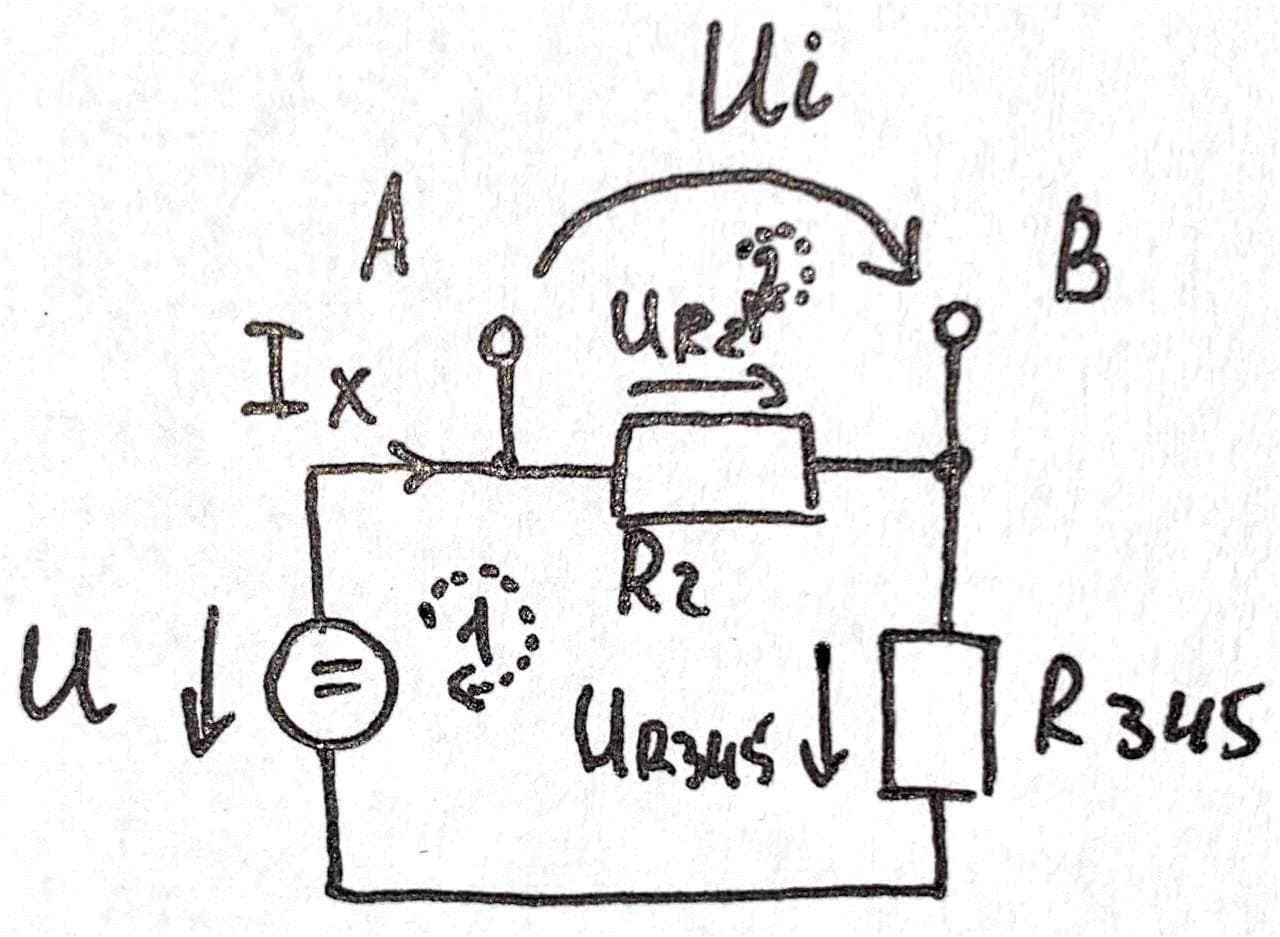 Ui
A
B
2
UR2
Ix
R2
1
U
UR345
R345